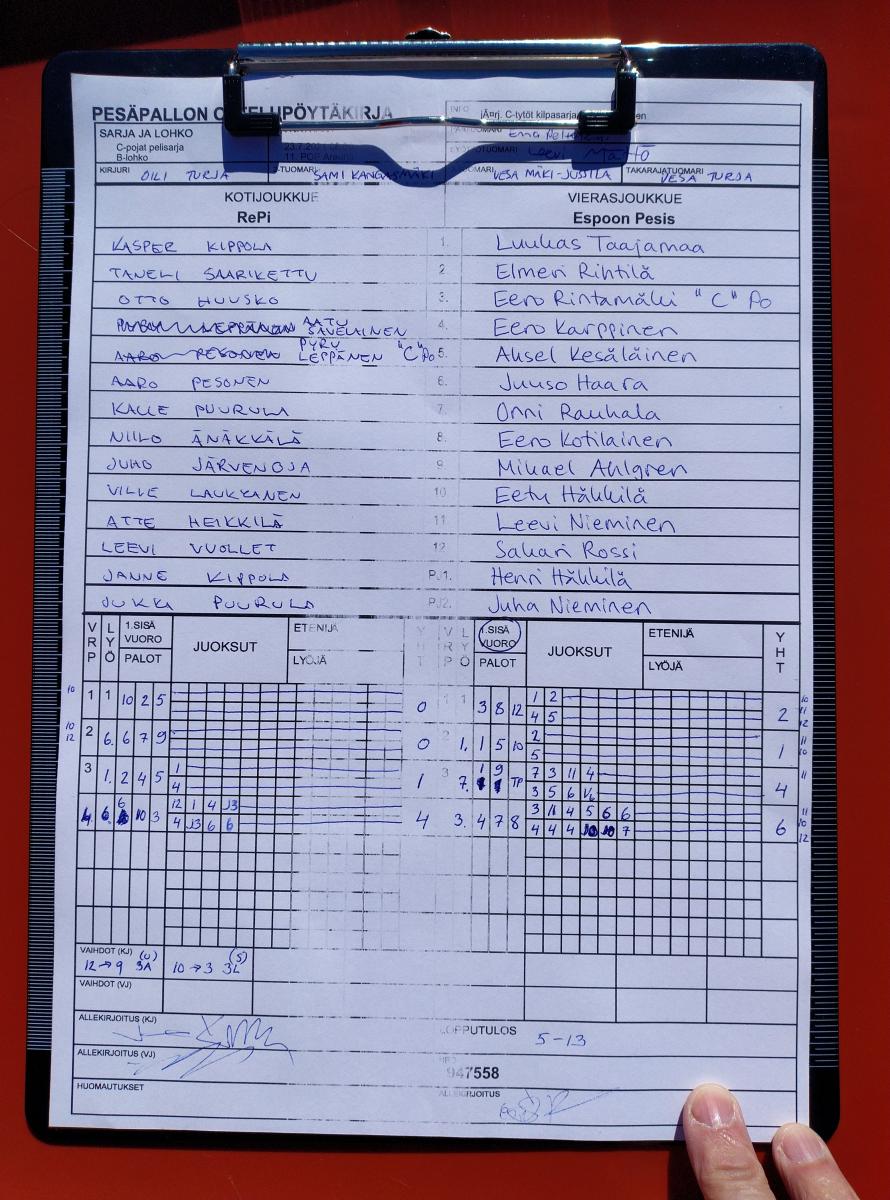 PESÄPALLON OTTELUPÖYTÄKIRJA
INFO
jÄ¤rj. C-tytöt kilpasarja
SARJA JA LOHKO
C-pojat pelisarja
B-lohko
23.7.2021
Leevi Mattö
KIRJURI OILI TURJA
SAMI KANGASMÄKI
VESA MÄKI-JUSSILA
TAKARAJATUOMARI VESA TURJA
KOTIJOUKKUE VIERASJOUKKUE
RePi Espoon Pesis
KASPER KIPPOLA 1. Luukas Taajamaa
TANELI SAARIKETTU 2 Elmeri Rihtilä
OTTO HUUSKO 3. Eero Rintamäki "C" Po
AATU SAVELAINEN 4. Eero Karppinen
PYRY LEPPÄNEN "C" Po 5. Aksel Kesäläinen
AARO PESONEN 6. Juuso Haara
KALLE PUURULA 7. Onni Rauhala
NIILO ÄNÄKKÄLÄ 8. Eero Kotilainen
JUHO JÄRVENOJA 9. Mikael Ahlgren
VILLE LAUKKANEN 10. Eetu Häkkilä
ATTE HEIKKILÄ 11. Leevi Nieminen
LEEVI VUOLLET 12. Sakari Rossi
JANNE KIPPOLA PJ1. Henri Häkkilä
JUKKA PUURULA PJ2. Juha Nieminen
VRP LYÖ 1.SISÄ VUORO PALOT JUOKSUT ETENIJÄ LYÖJÄ YHT VRP LYÖ 1.SISÄ VUORO PALOT JUOKSUT ETENIJÄ LYÖJÄ YHT
10 1 1 10 2 5 0 1 1 3 8 12 1 2 2 10 11 12
4 5
10 12 2 6. 6 7 9 0 1. 1 5 10 2 1 11 10
5
3 1. 2 4 5 1 1 3 7. 1 9 TP 7 3 11 4 4 11
4 3 5 6 V6
4 6. 6 10 3 12 1 4 J3 4 3. 4 7 8 3 11 4 5 6 6 6 11 10 12
4 J3 6 6 4 4 4 10 10 7
VAIHDOT (KJ) (U) 12→9 3A (S) 10→3 3L
VAIHDOT (VJ)
ALLEKIRJOITUS (KJ) LOPPUTULOS 5-13
ALLEKIRJOITUS (VJ)
947558
HUOMAUTUKSET ALLEKIRJOITUS